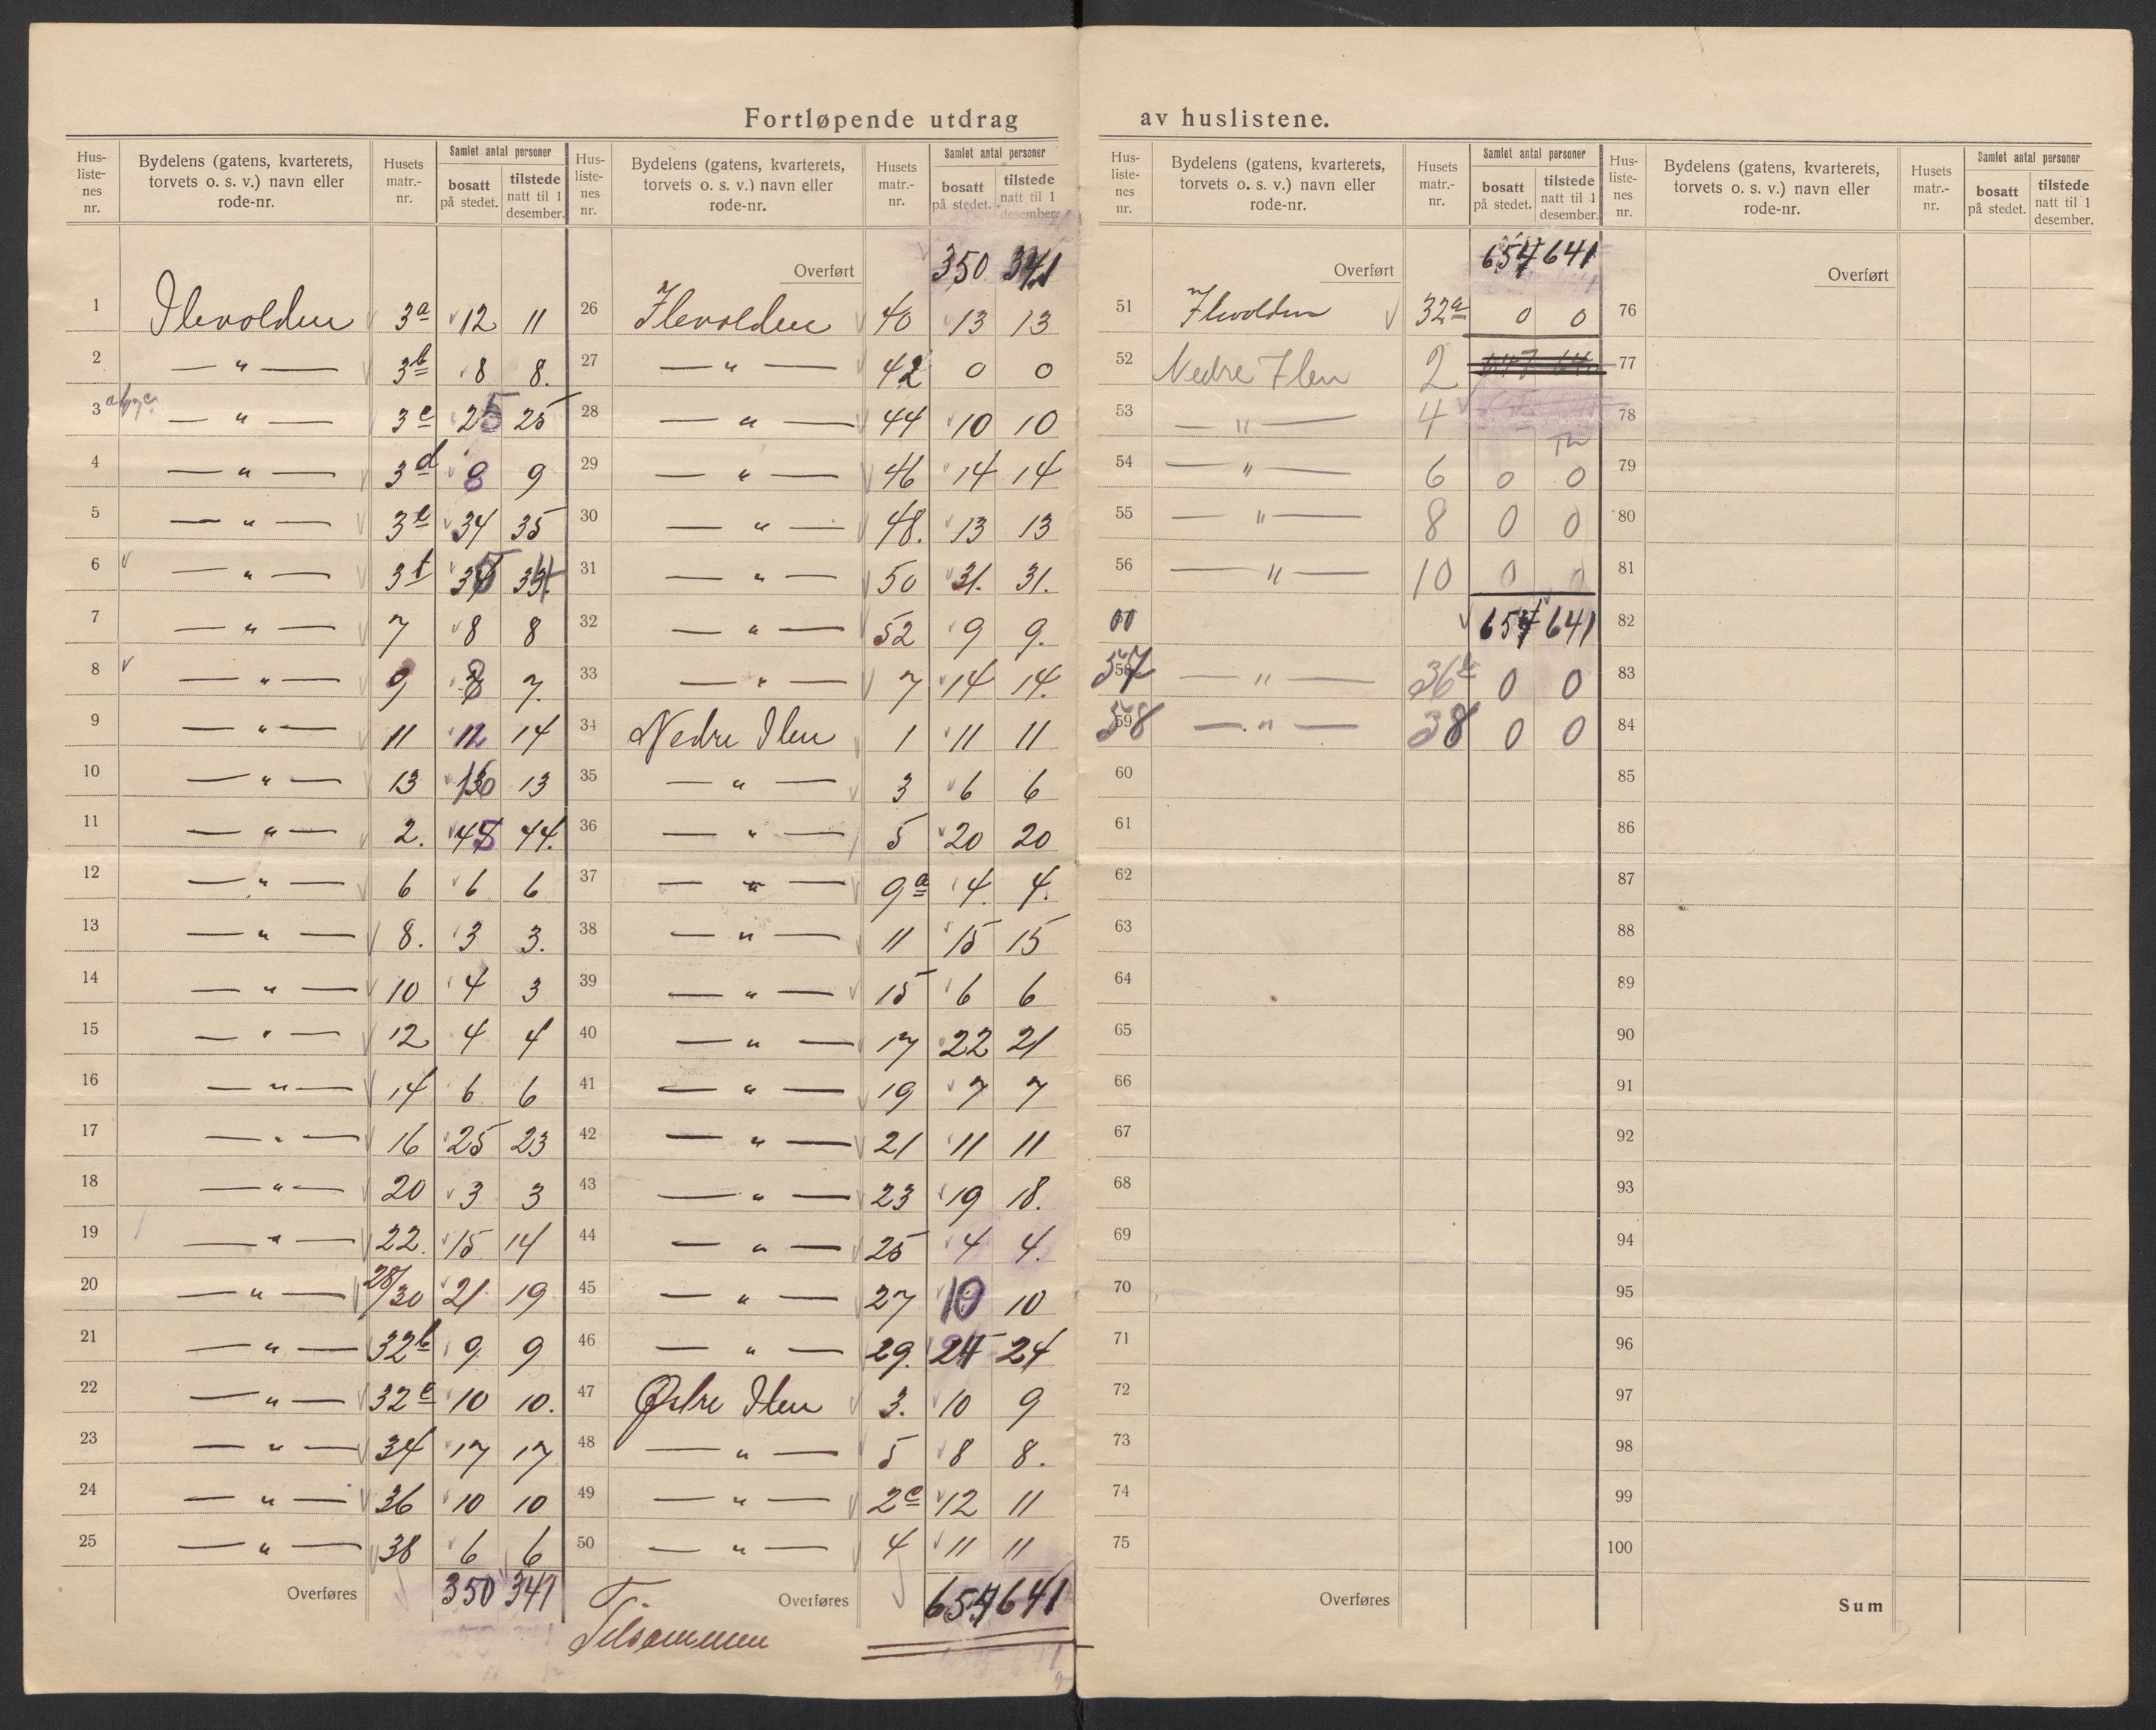 Fortløpende utdrag av huslistene.
Hus-liste-nes nr. | Bydelens (gatens, kvarterets, torvets o. s. v.) navn eller rode-nr. | Husets matr.-nr. | Samlet antal personer | bosatt på stedet. | tilstede natt til 1 desember.
1 Ilevolden 3a 12 11
2 — " — 3b 8 8.
3 — " — 3c 25 25
4 — " — 3d 8 9
5 — " — 3e 34 35
6 — " — 3f
7 — " — 7 8 8
8 — " — 9 8 7.
9 — " — 11 12 14
10 — " — 13 13
11 — " — 2. 45 44.
12 — " — 6 6 6
13 — " — 8. 3 3.
14 — " — 10 4 3
15 — " — 12 4 4
16 — " — 14 6 6
17 — " — 16 25 23
18 — " — 20 3 3
19 — " — 22. 15 14
20 — " — 28/30 21 19
21 — " — 32b 9 9
22 — " — 32c 10 10.
23 — " — 34 17 17
24 — " — 36 10 10
25 — " — 38 6 6
Overføres 350 341
Hus-liste-nes nr. | Bydelens (gatens, kvarterets, torvets o. s. v.) navn eller rode-nr. | Husets matr.-nr. | Samlet antal personer | bosatt på stedet. | tilstede natt til 1 desember.
Overført 350 341
26 Ilevolden 40 13 13
27 — " — 42 0 0
28 — " — 44 10 10
29 — " — 46 14 14
30 — " — 48. 13 13
31 — " — 50 31. 31.
32 — " — 52 9 9.
33 — " — 7 14 14.
34 Nedre Ilen 1 11 11
35 — " — 3 6 6
36 — " — 5 20 20
37 — " — 9a 4. 4.
38 — " — 11 15 15
39 — " — 15 6 6
40 — " — 17 22 21
41 — " — 19 7 7
42 — " — 21 11 11
43 — " — 23 19 18.
44 — " — 25 4 4.
45 — " — 27 10 10
46 — " — 29. 24 24
47 Øvre Ilen 3. 10 9
48 — " — 5 8 8.
49 — " — 2c 12 11
50 — " — 4 11 11
Overføres 657 641
Tilsammen
Hus-liste-nes nr. | Bydelens (gatens, kvarterets, torvets o. s. v.) navn eller rode-nr. | Husets matr.-nr. | Samlet antal personer | bosatt på stedet. | tilstede natt til 1 desember.
Overført 657 641
51 Ilevolden 32a 0 0
52 Nedre Ilen 2
53 — " — 4
54 — " — 6 0 0
55 — " — 8 0 0
56 — " — 10 0 0
657 641
57 — " — 0 0
58 — " — 38 0 0
60
61
62
63
64
65
66
67
68
69
70
71
72
73
74
75
Overføres
Hus-liste-nes nr. | Bydelens (gatens, kvarterets, torvets o. s. v.) navn eller rode-nr. | Husets matr.-nr. | Samlet antal personer | bosatt på stedet. | tilstede natt til 1 desember.
Overført
76
77
78
79
80
81
82
83
84
85
86
87
88
89
90
91
92
93
94
95
96
97
98
99
100
Sum